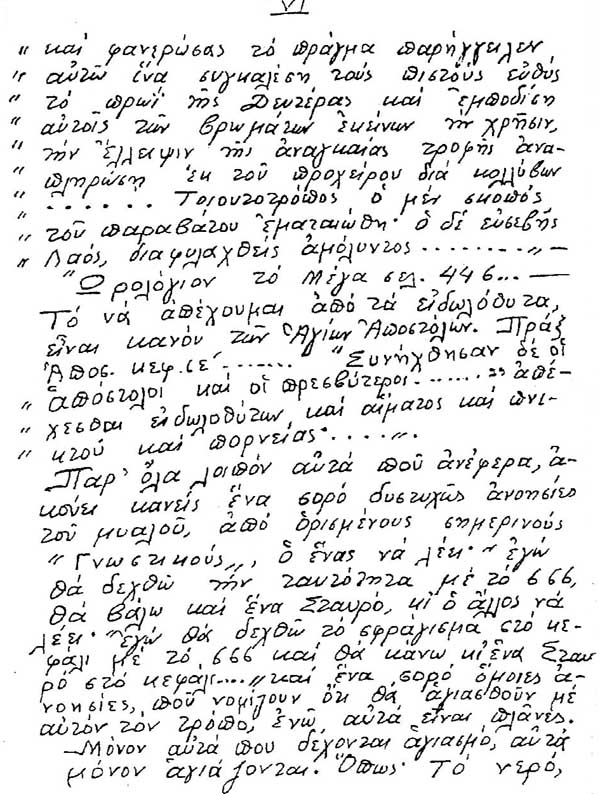 VI
" καί φανερώσας τό πρᾶγμα παρήγγειλεν
" αὐτῶ ἵνα συγκαλέση τούς πιστούς εὐθύς
" τό πρωΐ τῆς Δευτέρας καί ἐμποδίση
" αὐτοῖς τῶν βρωμάτων ἐκείνων τήν χρῆσιν,
" τήν ἔλλειψιν τῆς ἀναγκαίας τροφῆς ἀνα-
" πληρώση ἐκ τοῦ προχείρου διά κολλύβων
" ....... Τοιουτοτρόπως ὁ μέν σκοπός
" τοῦ παραβάτου ἐματαιώθη· ὁ δέ εὐσεβής
" Λαός, διαφυλαχθείς ἀμόλυντος ........." —
"Ὡρολόγιον τό Μέγα σελ. 446... —
Τό νά ἀπέχουμαι ἀπό τά εἰδωλόθυτα,
εἶναι κανόν τῶν Ἁγίων Ἀποστόλων. Πράξ
Ἀποσ. κεφ. ιε΄....... "Συνήχθησαν δέ οἱ
" ἀπόστολοι καί οἱ πρεσβύτεροι......." ἀπέ-
" χεσθαι εἰδωλοθύτων καί αἵματος καί πνι-
" κτοῦ καί πορνείας·....".
Παρ' ὅλα λοιπόν αὐτά πού ἀνέφερα, ἀ-
κούει κανείς ἕνα σορό δυστυχῶς ἀνοησίες
τοῦ μυαλοῦ, ἀπό ὁρισμένους σημερινούς
"Γνωστικούς,,, ὁ ἕνας νά λέει· "ἐγώ
θά δεχθῶ τήν ταυτότητα μέ τό 666,
θά βάλω καί ἕνα Σταυρό, κι ὁ ἄλλος νά
λέει· "ἐγώ θά δεχθῶ τό σφράγισμα στό κε-
φάλι μέ τό 666 καί θά κάνω κι ἕνα Σταυ
ρό στό κεφάλι...." καί ἕνα σορό ὅμοιες ἀ-
νοησίες, πού νομίζουν ὅτι θά ἁγιασθοῦν μέ
αὐτόν τόν τρόπο, ἐνῶ αὐτά εἶναι πλάνες.
—Μόνον αὐτά που δέχονται ἁγιασμό, αὐτά
μόνον ἁγιάζονται. Ὅπως· Τό νερό,